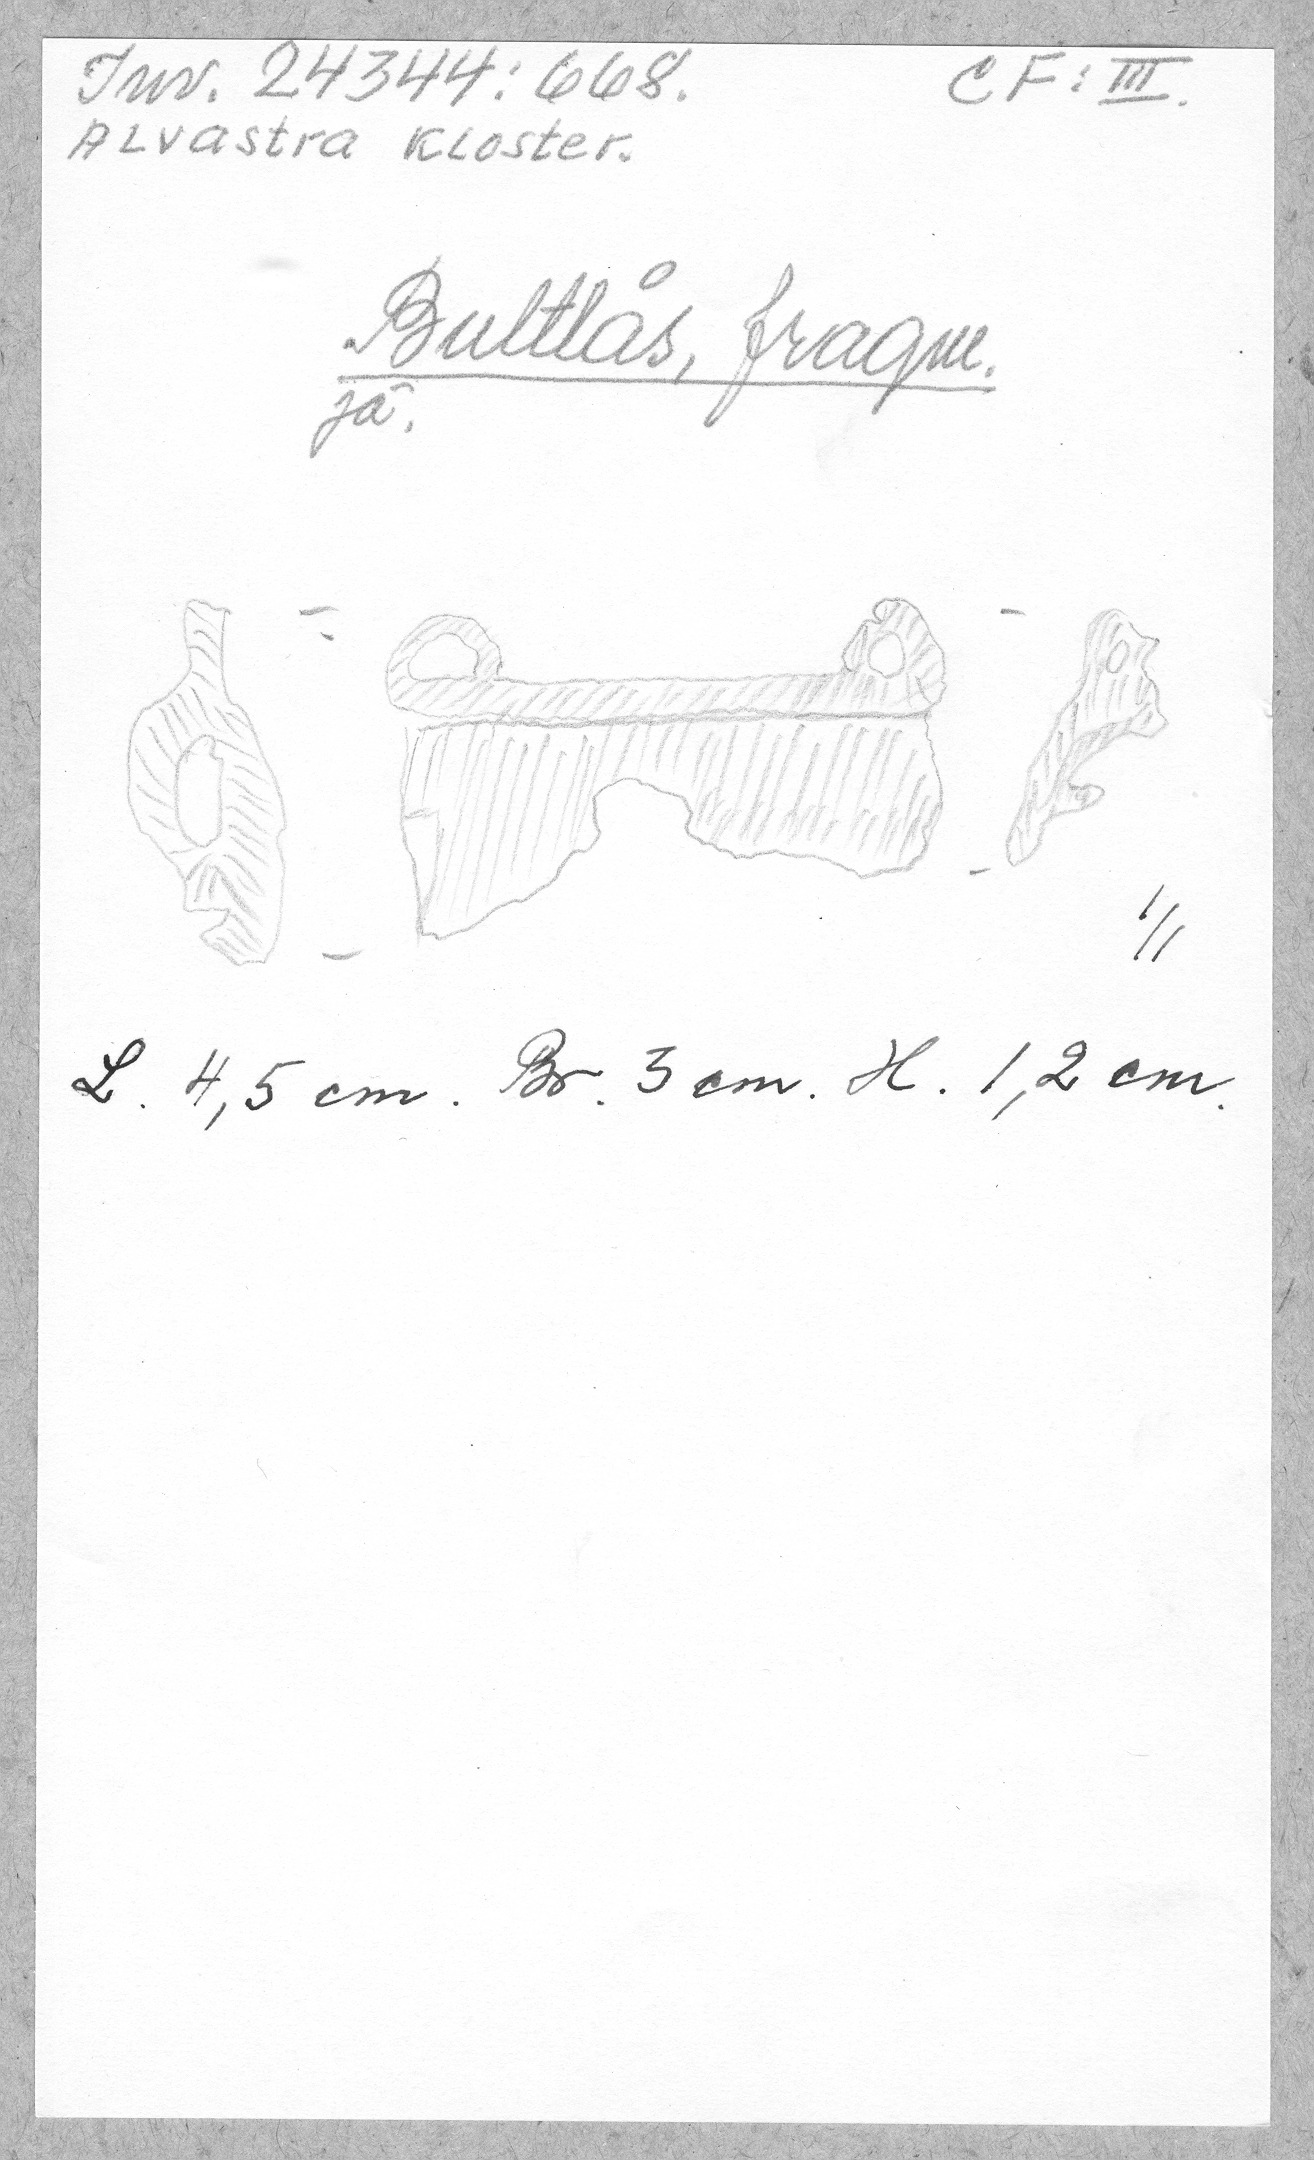 Inv. 24344:668. CF: III.
Alvastra Kloster.
Bultlås, fragm.
jä.
1/1
L. 4,5 cm. Br. 3 cm. H. 1,2 cm.